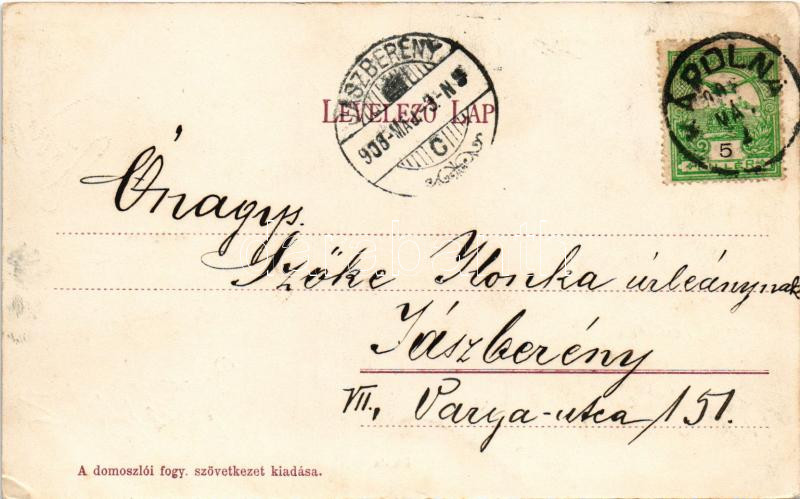 JÁSZBERÉNY
908 MÁJ. 3-N
C
LEVELEZŐ LAP
KÁPOLNA
5
Önagys.
Szőke Ilonka úrleánynak
Jászberény
VII., Varga-utca 151.
A domoszlói fogy. szövetkezet kiadása.